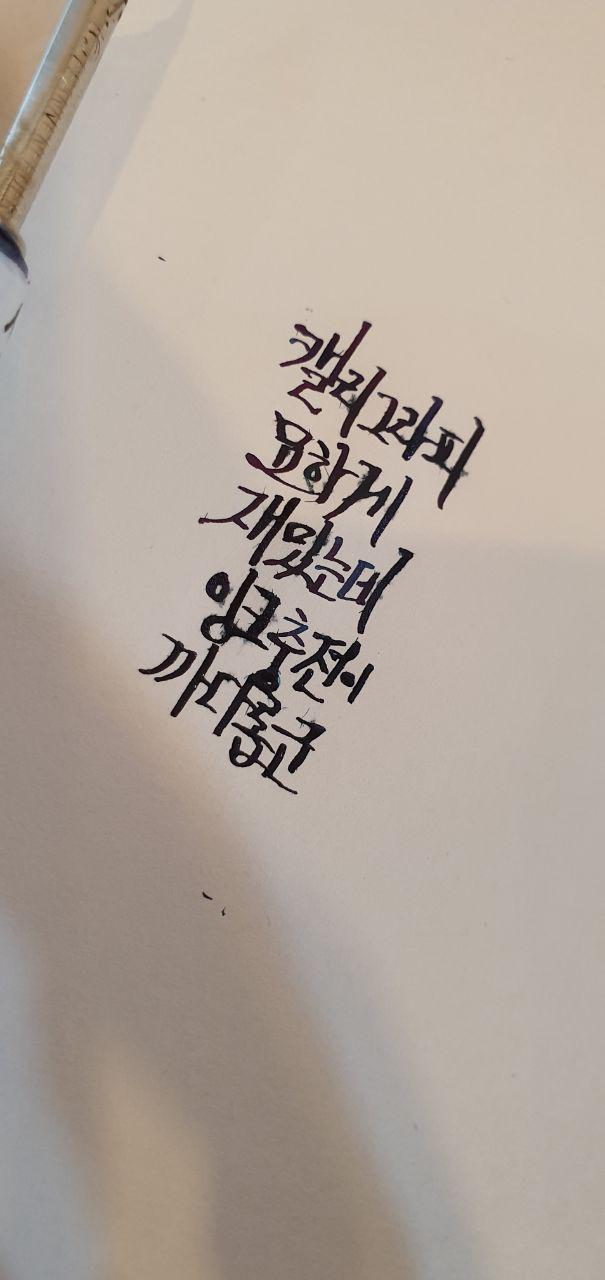 캘리그라피
묘하게
재밌는데
잉크충전이
까다롭군